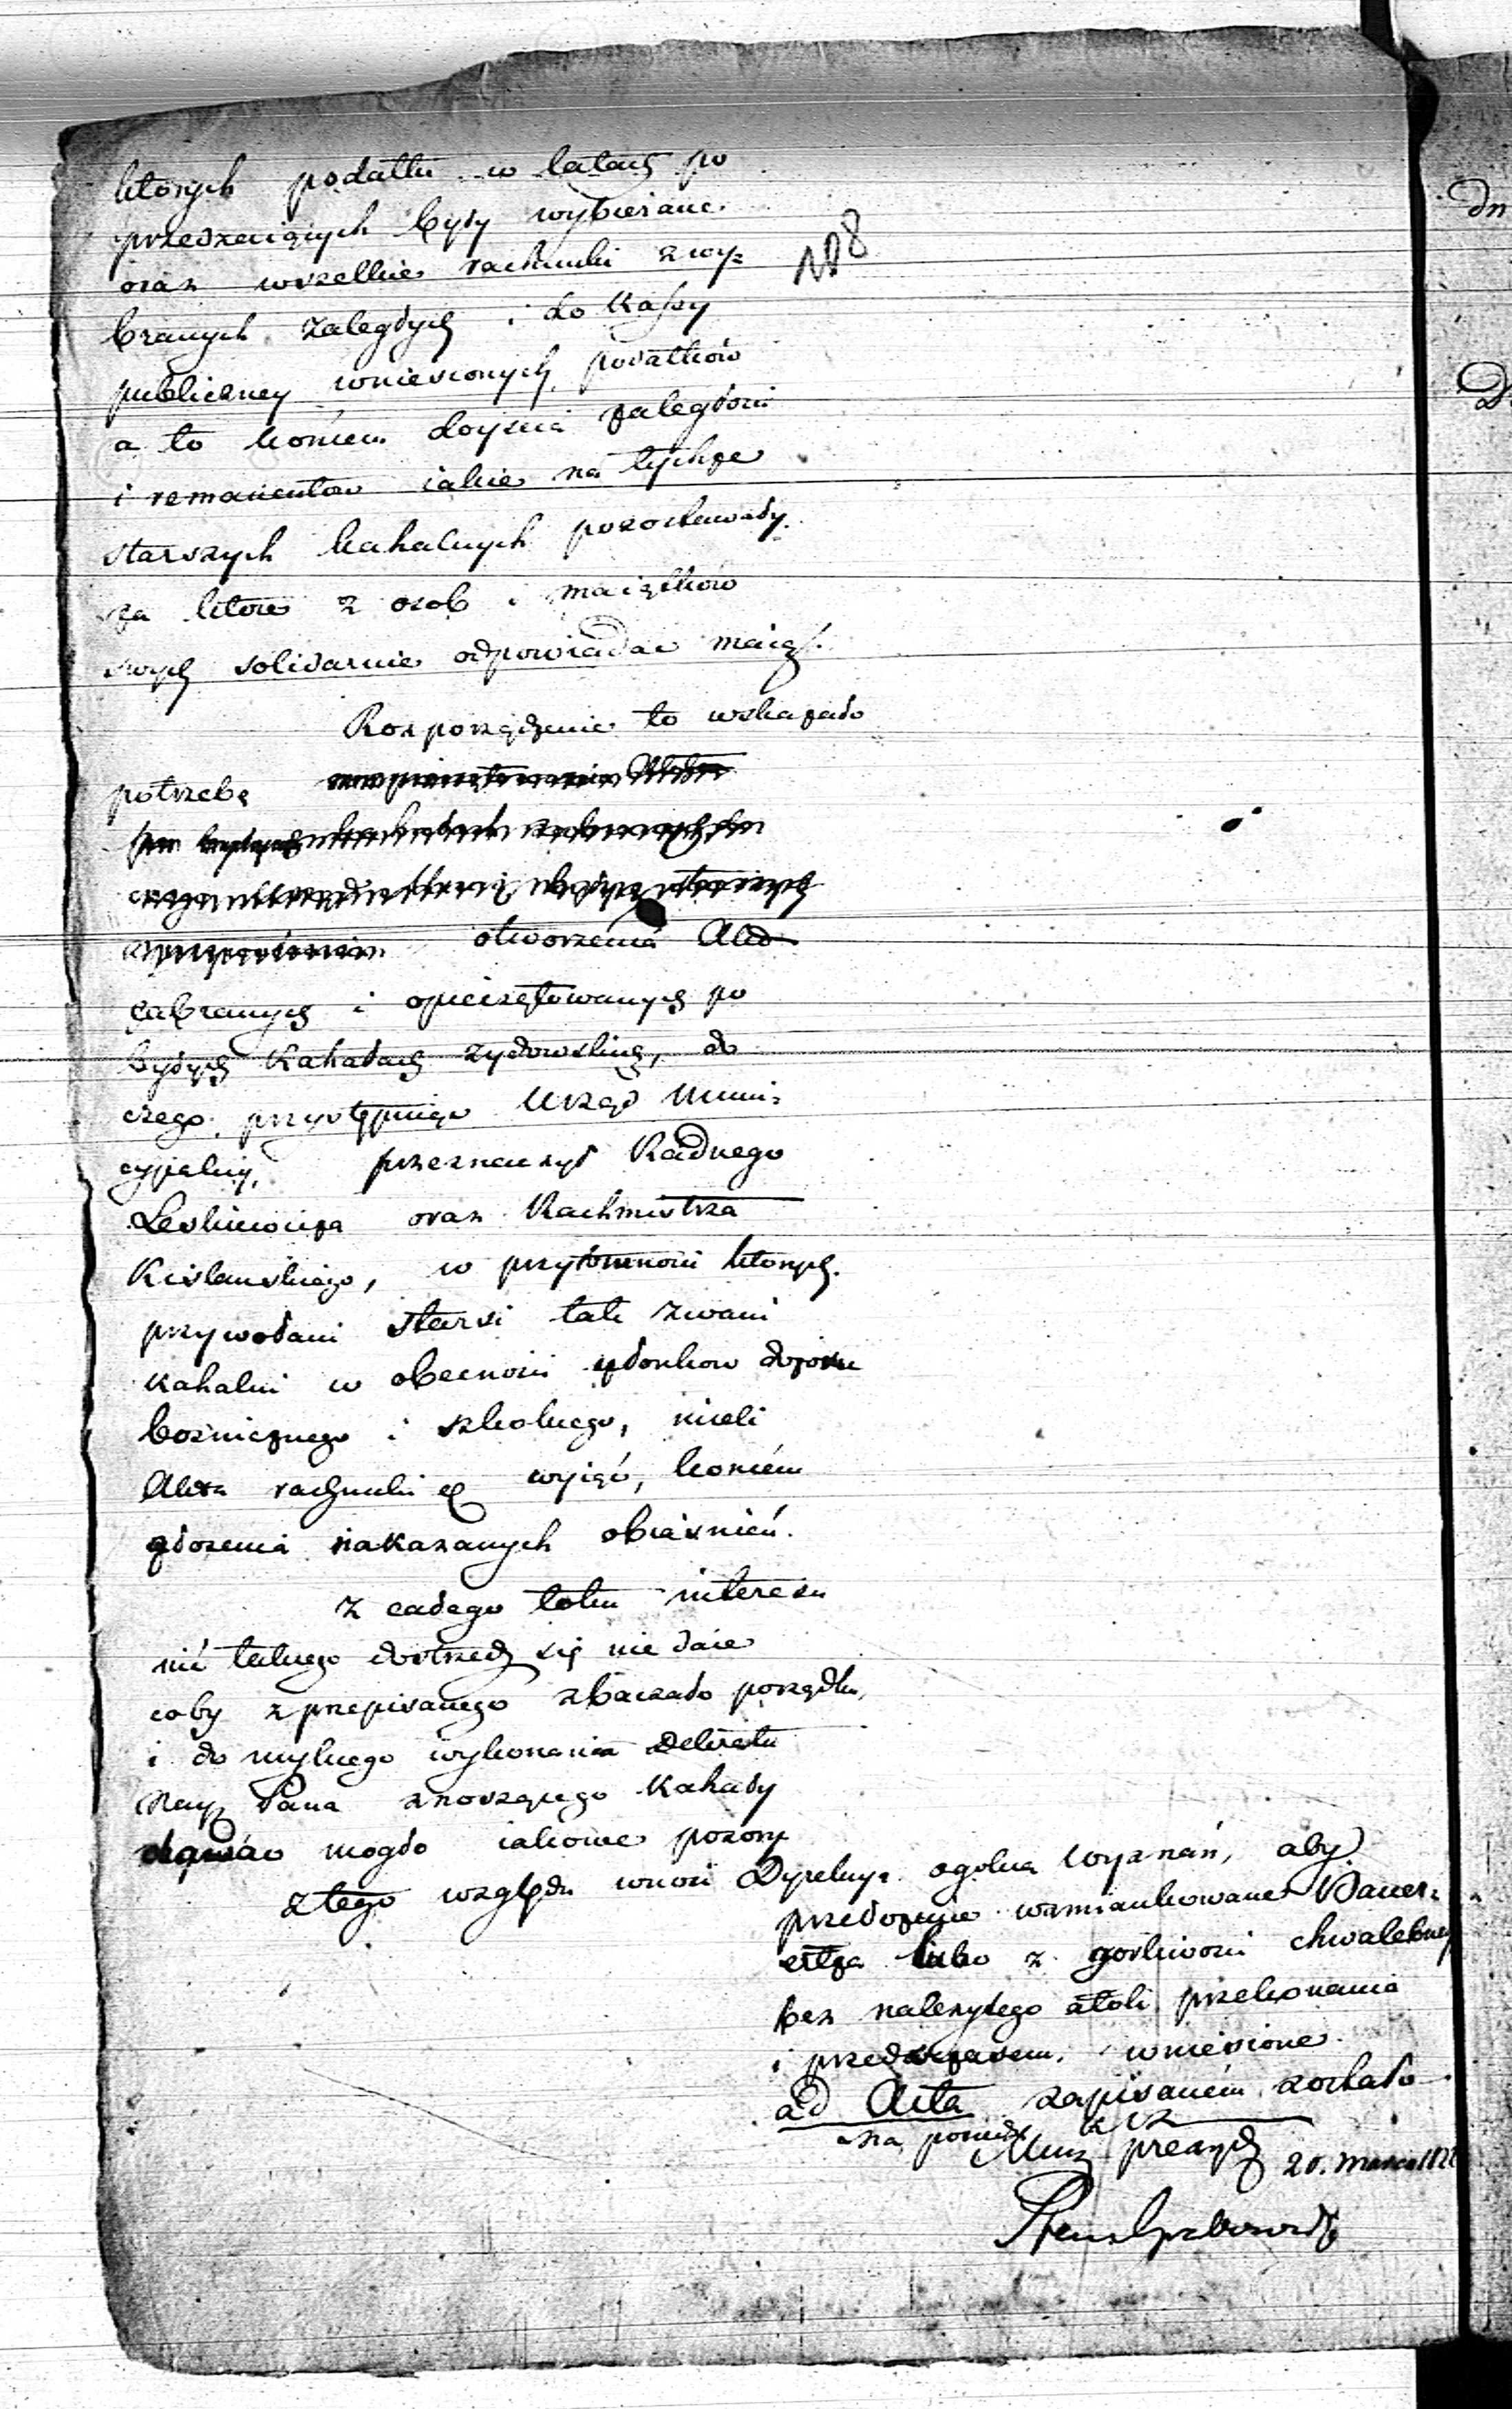 których podatki w latach po
przedzaiących były wybierane
oraz wszelkie rachunki z wy=
branych zaległych i do Kassy
publiczney wniesionych podatków
a to koncem doyscia zaległosci
i remanentow iakie na tychże
starszych kahalnych pozostawały
za ktore z osob i maiątkow
swych solidarnie odpowiadać maią.
108
Rozporządzenie to wskazało
potrzebę
otworzenia Akt
zabranych i opieczętowanych po
byłych Kahałach zydowskich, do
czego przystępuiąc Urząd Muni=
cypalny, przeznaczył Radnego
Leskiewicza oraz Rachmistrza
Kislanskiego, w przytomnosci ktorych
przywołani starsi tak zwani
kahalni w obecnosci członkow dozoru
bozniczego i szkolnego, mieli
Akta rachunki etc wyiąć, koncem
złozenia nakazanych obiasnień.
Z całego toku interesu
nic takiego dostrzedz się nie daie
coby z przepisanego zbaczało porządku,
i do mylnego wykonania Dekretu
Nay. Pana znoszącego Kahały
mogło iakowe pozory
z tego względu wnosi Dyrekcya ogolna Wyznań, aby
przełożenie wzmiankowane
lubo z gorliwosci chwalebney
bez nalezytego atoli przekonania
i przed czasem, wniesione
ad Acta zapisanem zostało
na posiedz
prezyd 20. Marca 182